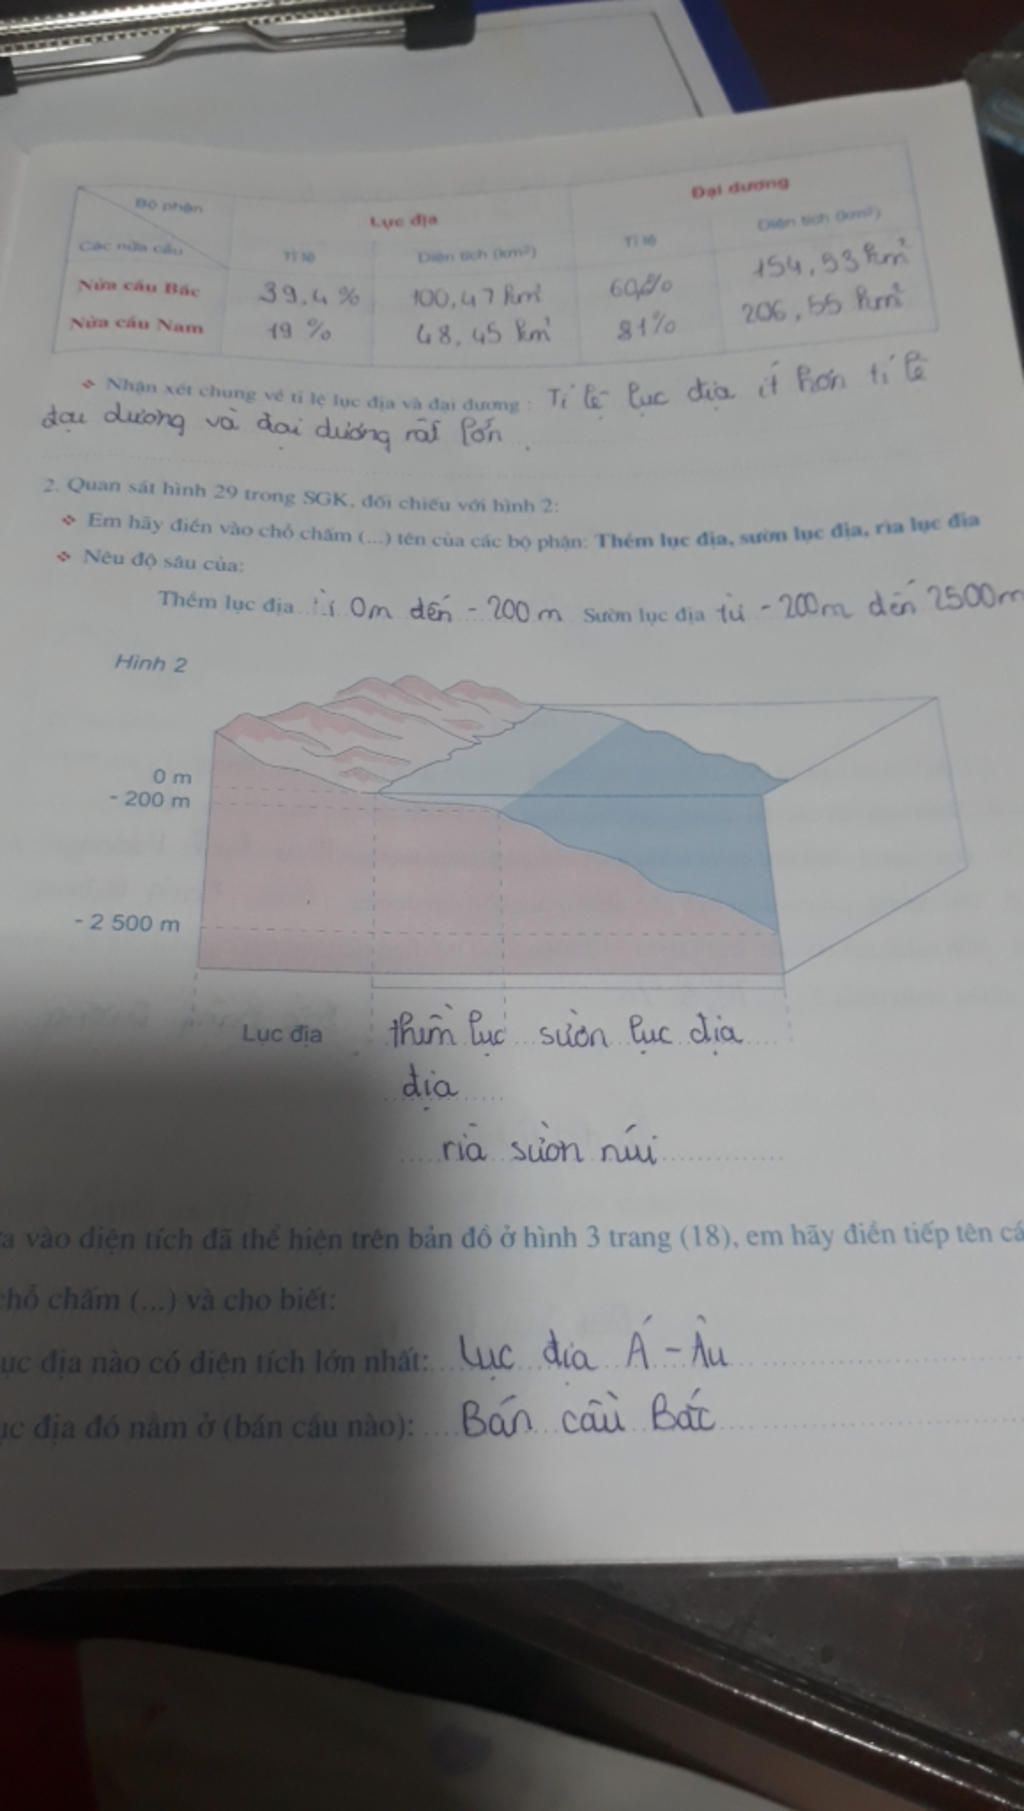 Bộ phận
Các nửa cầu
Lục địa
Đại dương
Tỉ lệ
Diện tích (km²)
Tỉ lệ
Diện tích (km²)
Nửa cầu Bắc
39,4 %
100,47 km²
154,53 km²
Nửa cầu Nam
19 %
48,45 km²
81%
206,55 km²
❖ Nhận xét chung về tỉ lệ lục địa và đại dương : Tỉ lệ lục địa ít hơn tỉ lệ
đại dương và đại dương rất lớn.
2. Quan sát hình 29 trong SGK, đối chiếu với hình 2:
❖ Em hãy điền vào chỗ chấm (...) tên của các bộ phận: Thềm lục địa, sườn lục địa, rìa lục địa
❖ Nêu độ sâu của:
Thềm lục địa từ 0m đến - 200 m Sườn lục địa từ - 200m đến 2500m
Hình 2
0 m
- 200 m
- 2 500 m
Lục địa thềm lục sườn lục địa
địa
rìa sườn núi
a vào diện tích đã thể hiện trên bản đồ ở hình 3 trang (18), em hãy điền tiếp tên
chỗ chấm (...) và cho biết:
ục địa nào có diện tích lớn nhất: Lục địa Á - Âu
ục địa đó nằm ở (bán cầu nào): Bán cầu Bắc